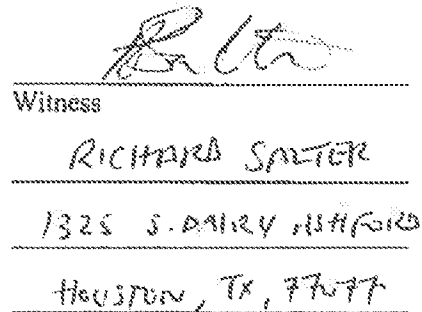 Witness
RICHARD SALTER
1325 S. DAIRY ASHFORD
HOUSTON, TX, 77077